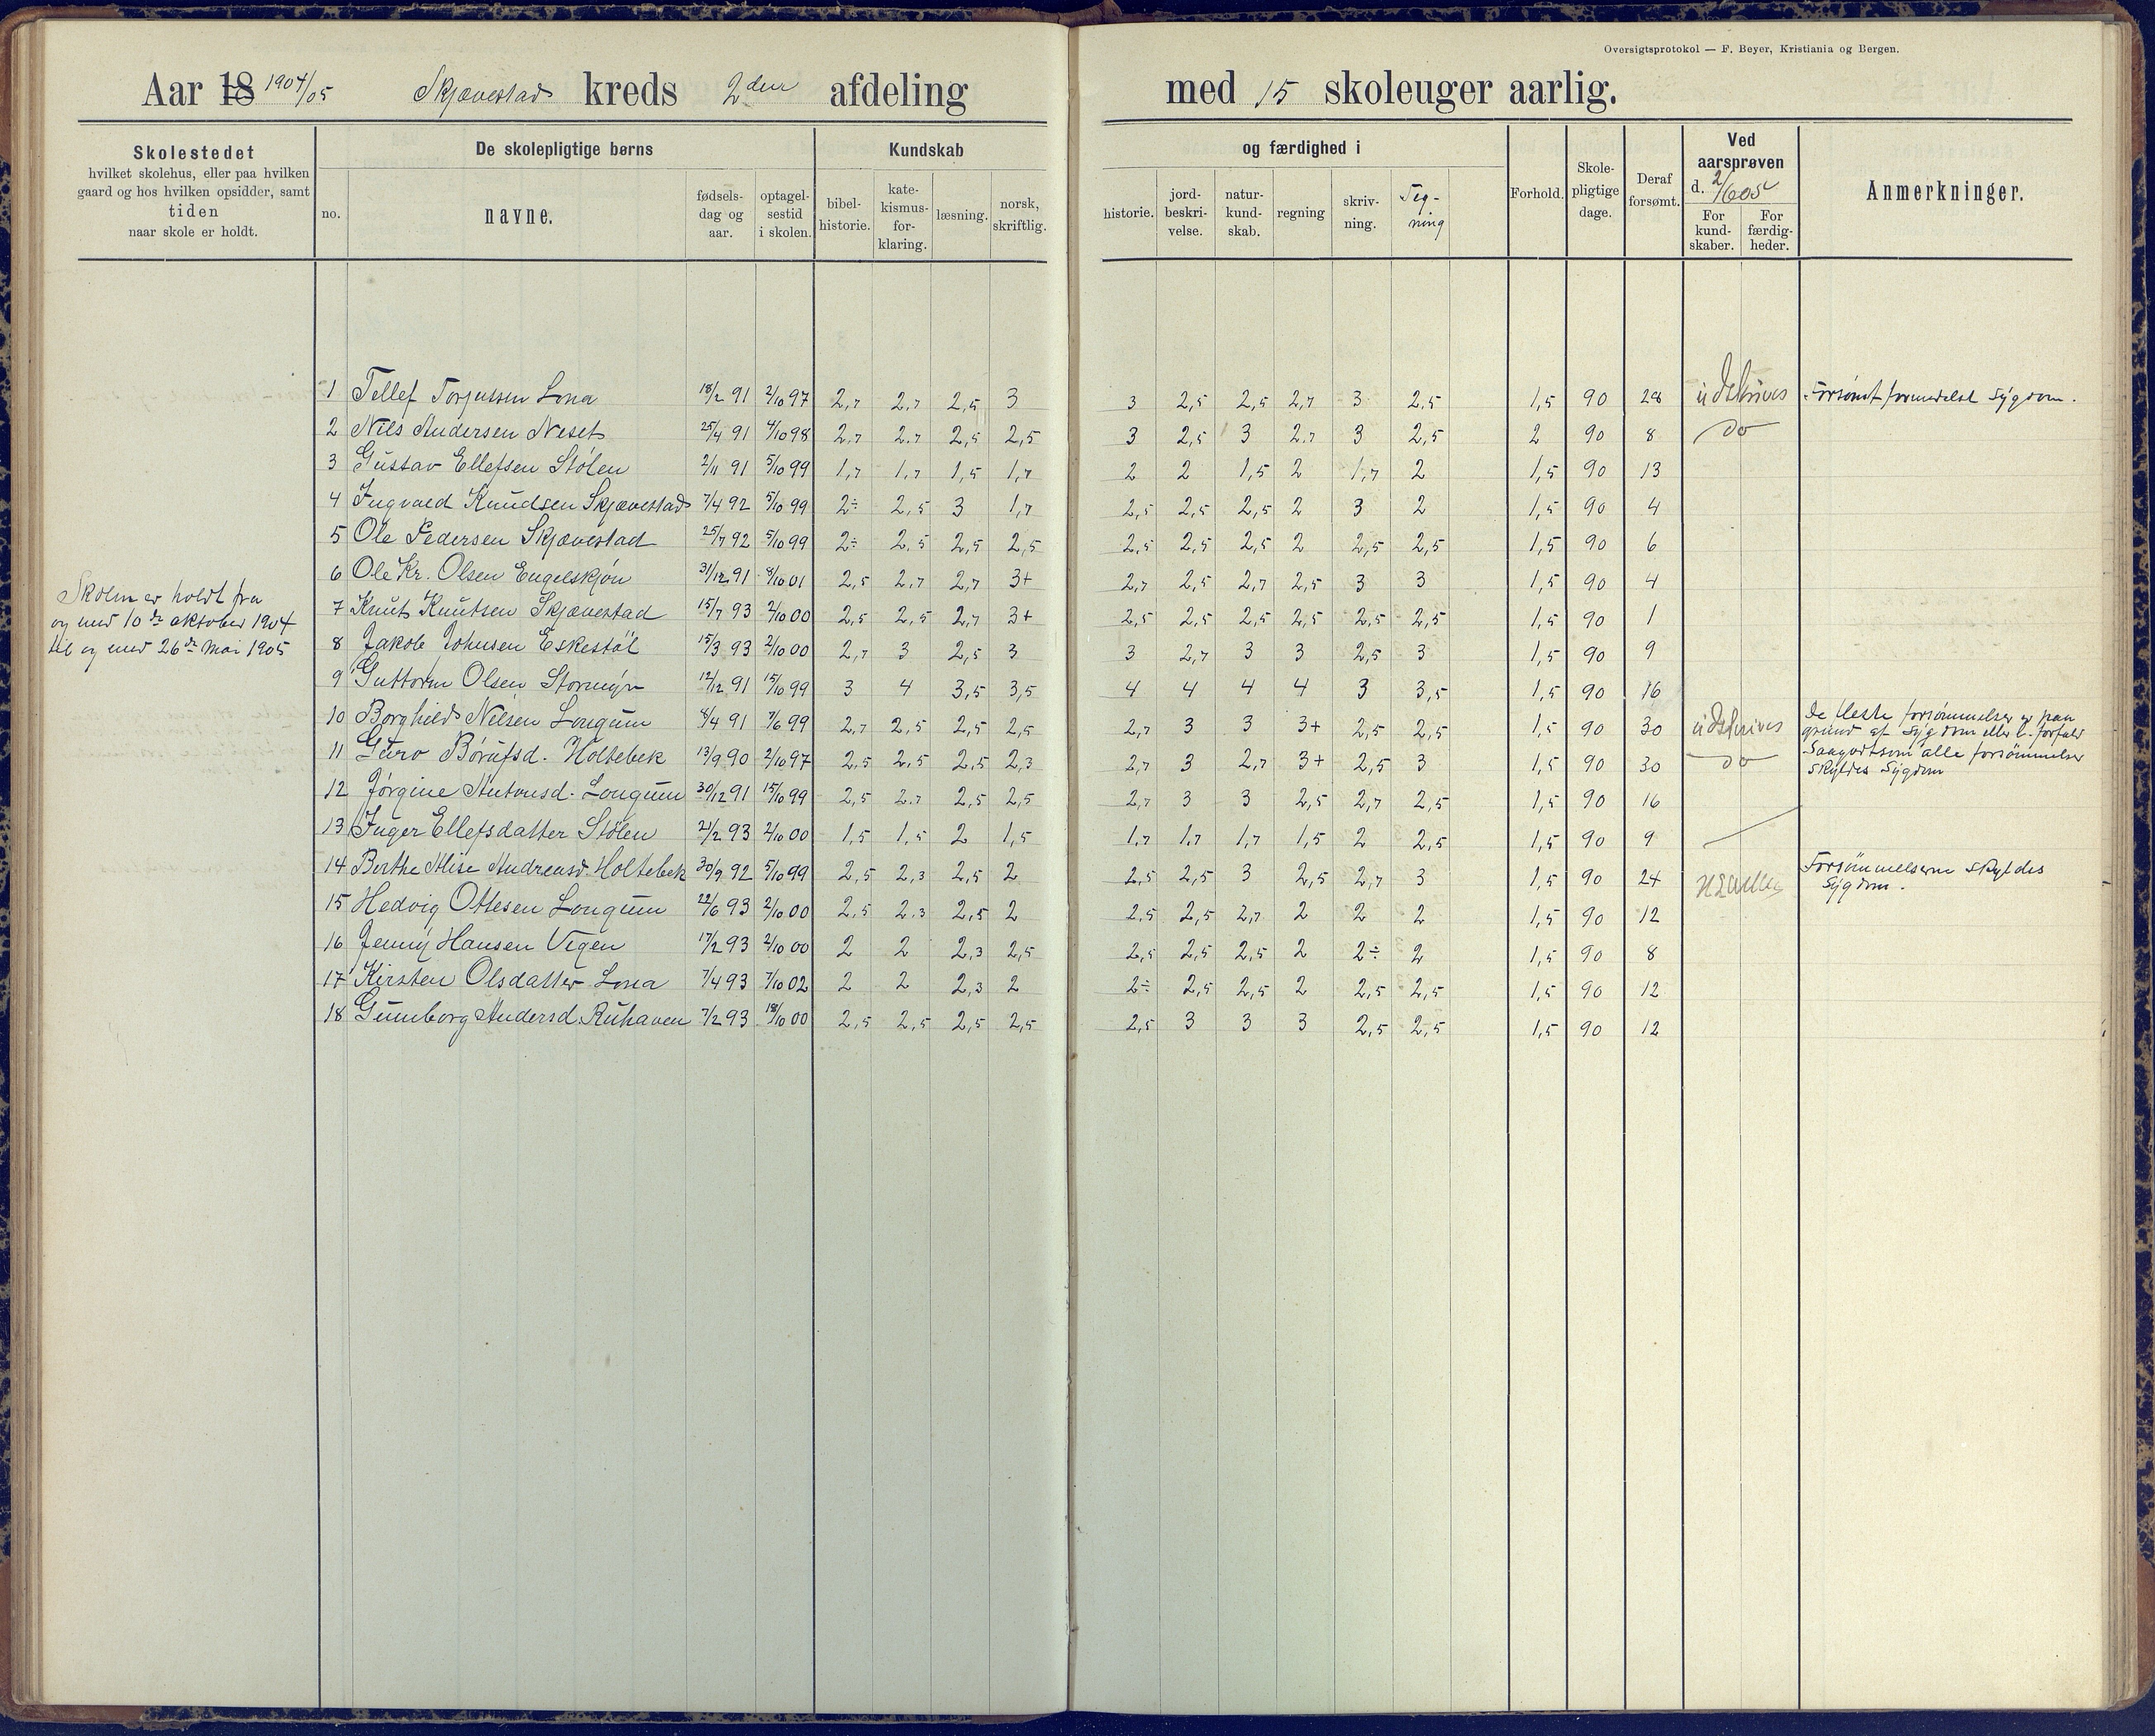 Oversigtsprotokol — F. Beyer, Kristiania og Bergen.
Aar 18 1904/05 Skjævestad kreds 2den afdeling med 15 skoleuger aarlig.
Skolestedet
hvilket skolehus, eller paa hvilken
gaard og hos hvilken opsidder, samt
tiden
naar skole er holdt.
De skolepligtige børns
no.
navne.
fødsels-
dag og
aar.
optagel-
sestid
i skolen.
Kundskab
bibel-
historie.
kate-
kismus-
for-
klaring.
læsning.
norsk,
skriftlig.
og færdighed i
historie.
jord-
beskri-
velse.
natur-
kund-
skab.
regning
skriv-
ning.
Teg-
ning
Forhold.
Skole-
pligtige
dage.
Deraf
forsømt.
Ved
aarsprøven
d. 2/6 05
For
kund-
skaber.
For
færdig-
heder.
Anmerkninger.
Skolen er holdt fra
og med 10de oktober 1904
til og med 26de Mai 1905
1 Tellef Torjussen Lona 18/2 91 2/10 97 2,7 2,7 2,5 3 3 2,5 2,5 2,7 3 2,5 1,5 90 28 udskrives Forsømt formedelst Sygdom.
2 Nils Andersen Neset 25/4 91 4/10 98 2,7 2,7 2,5 2,5 3 2,5 3 2,7 3 2,5 2 90 8 do
3 Gustav Ellefsen Stölen 2/11 91 5/10 99 1,7 1,7 1,5 1,7 2 2 1,5 2 1,7 2 1,5 90 13
4 Ingvald Knudsen Skjævestad 7/4 92 5/10 99 2÷ 2,5 3 1,7 2,5 2,5 2,5 2 3 2 1,5 90 4
5 Ole Pedersen Skjævestad 25/7 92 5/10 99 2÷ 2,5 2,5 2,5 2,5 2,5 2,5 2 2,5 2,5 1,5 90 6
6 Ole Kr. Olsen Engelskjön 31/12 91 8/10 01 2,5 2,7 2,7 3+ 2,7 2,5 2,7 2,5 3 3 1,5 90 4
7 Knut Knutsen Skjævestad 15/7 93 2/10 00 2,5 2,5 2,7 3+ 2,5 2,5 2,5 2,5 2,5 2,5 1,5 90 1
8 Jakob Johnsen Eskestöl 15/3 93 2/10 00 2,7 3 2,5 3 3 2,7 3 3 2,5 3 1,5 90 9
9 Guttorm Olsen Stormyr 12/12 91 15/10 99 3 4 3,5 3,5 4 4 4 4 3 3,5 1,5 90 16
10 Borghild Nilsen Longum 8/4 91 7/6 99 2,7 2,5 2,5 2,5 2,7 3 3 3+ 2,5 2,5 1,5 90 30 udskrives De fleste forsömmelser er paa
grund af Sygdom eller l. forfald
11 Guro Börufsd. Holtebek 13/9 90 2/10 97 2,5 2,5 2,5 2,3 2,7 3 2,7 3+ 2,5 3 1,5 90 30 do Saagodtsom alle forsömmelser
skyldes Sygdom
12 Jörgine Antonsd. Longum 30/12 91 15/10 99 2,5 2,7 2,5 2,5 2,7 3 3 2,5 2,7 2,5 1,5 90 16
13 Inger Ellefsdatter Stölen 21/2 93 2/10 00 1,5 1,5 2 1,5 1,7 1,7 1,7 1,5 2 2,5 1,5 90 9
14 Berthe Alise Andreasd. Holtebek 30/9 92 5/10 99 2,5 2,3 2,5 2 2,5 2,5 3 2,5 2,7 3 1,5 90 24 Forsömmelserne skyldes
Sygdom.
15 Hedvig Ottesen Longum 22/6 93 2/10 00 2,5 2,3 2,5 2 2,5 2,5 2,7 2 2 2 1,5 90 12
16 Jenny Hansen Vegen 17/2 93 2/10 00 2 2 2,3 2,5 2,5 2,5 2,5 2 2÷ 2 1,5 90 8
17 Kirsten Olsdatter Lona 7/4 93 7/10 02 2 2 2,3 2 2÷ 2,5 2,5 2 2,5 2,5 1,5 90 12
18 Gunnborg Andersd. Ruhaven 7/2 93 18/10 00 2,5 2,5 2,5 2,5 2,5 3 3 3 2,5 2,5 1,5 90 12